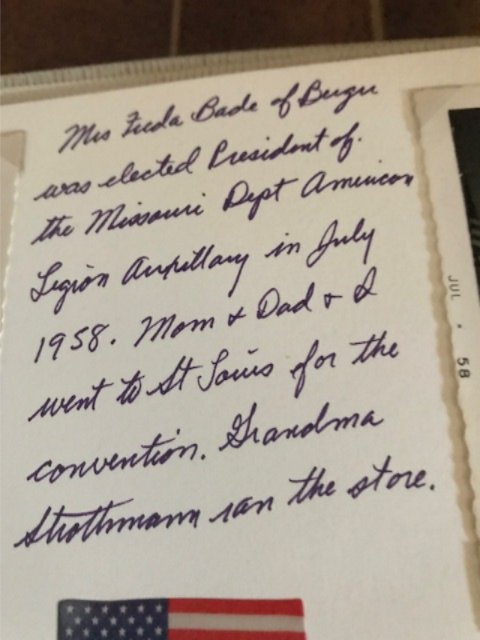 Mrs Frieda Bade of Berger
was elected President of.
the Missouri Dept American
Legion Auxillary in July
1958. Mom & Dad & I
went to St Louis for the
convention. Grandma
Strothmann ran the store.
JUL • 58